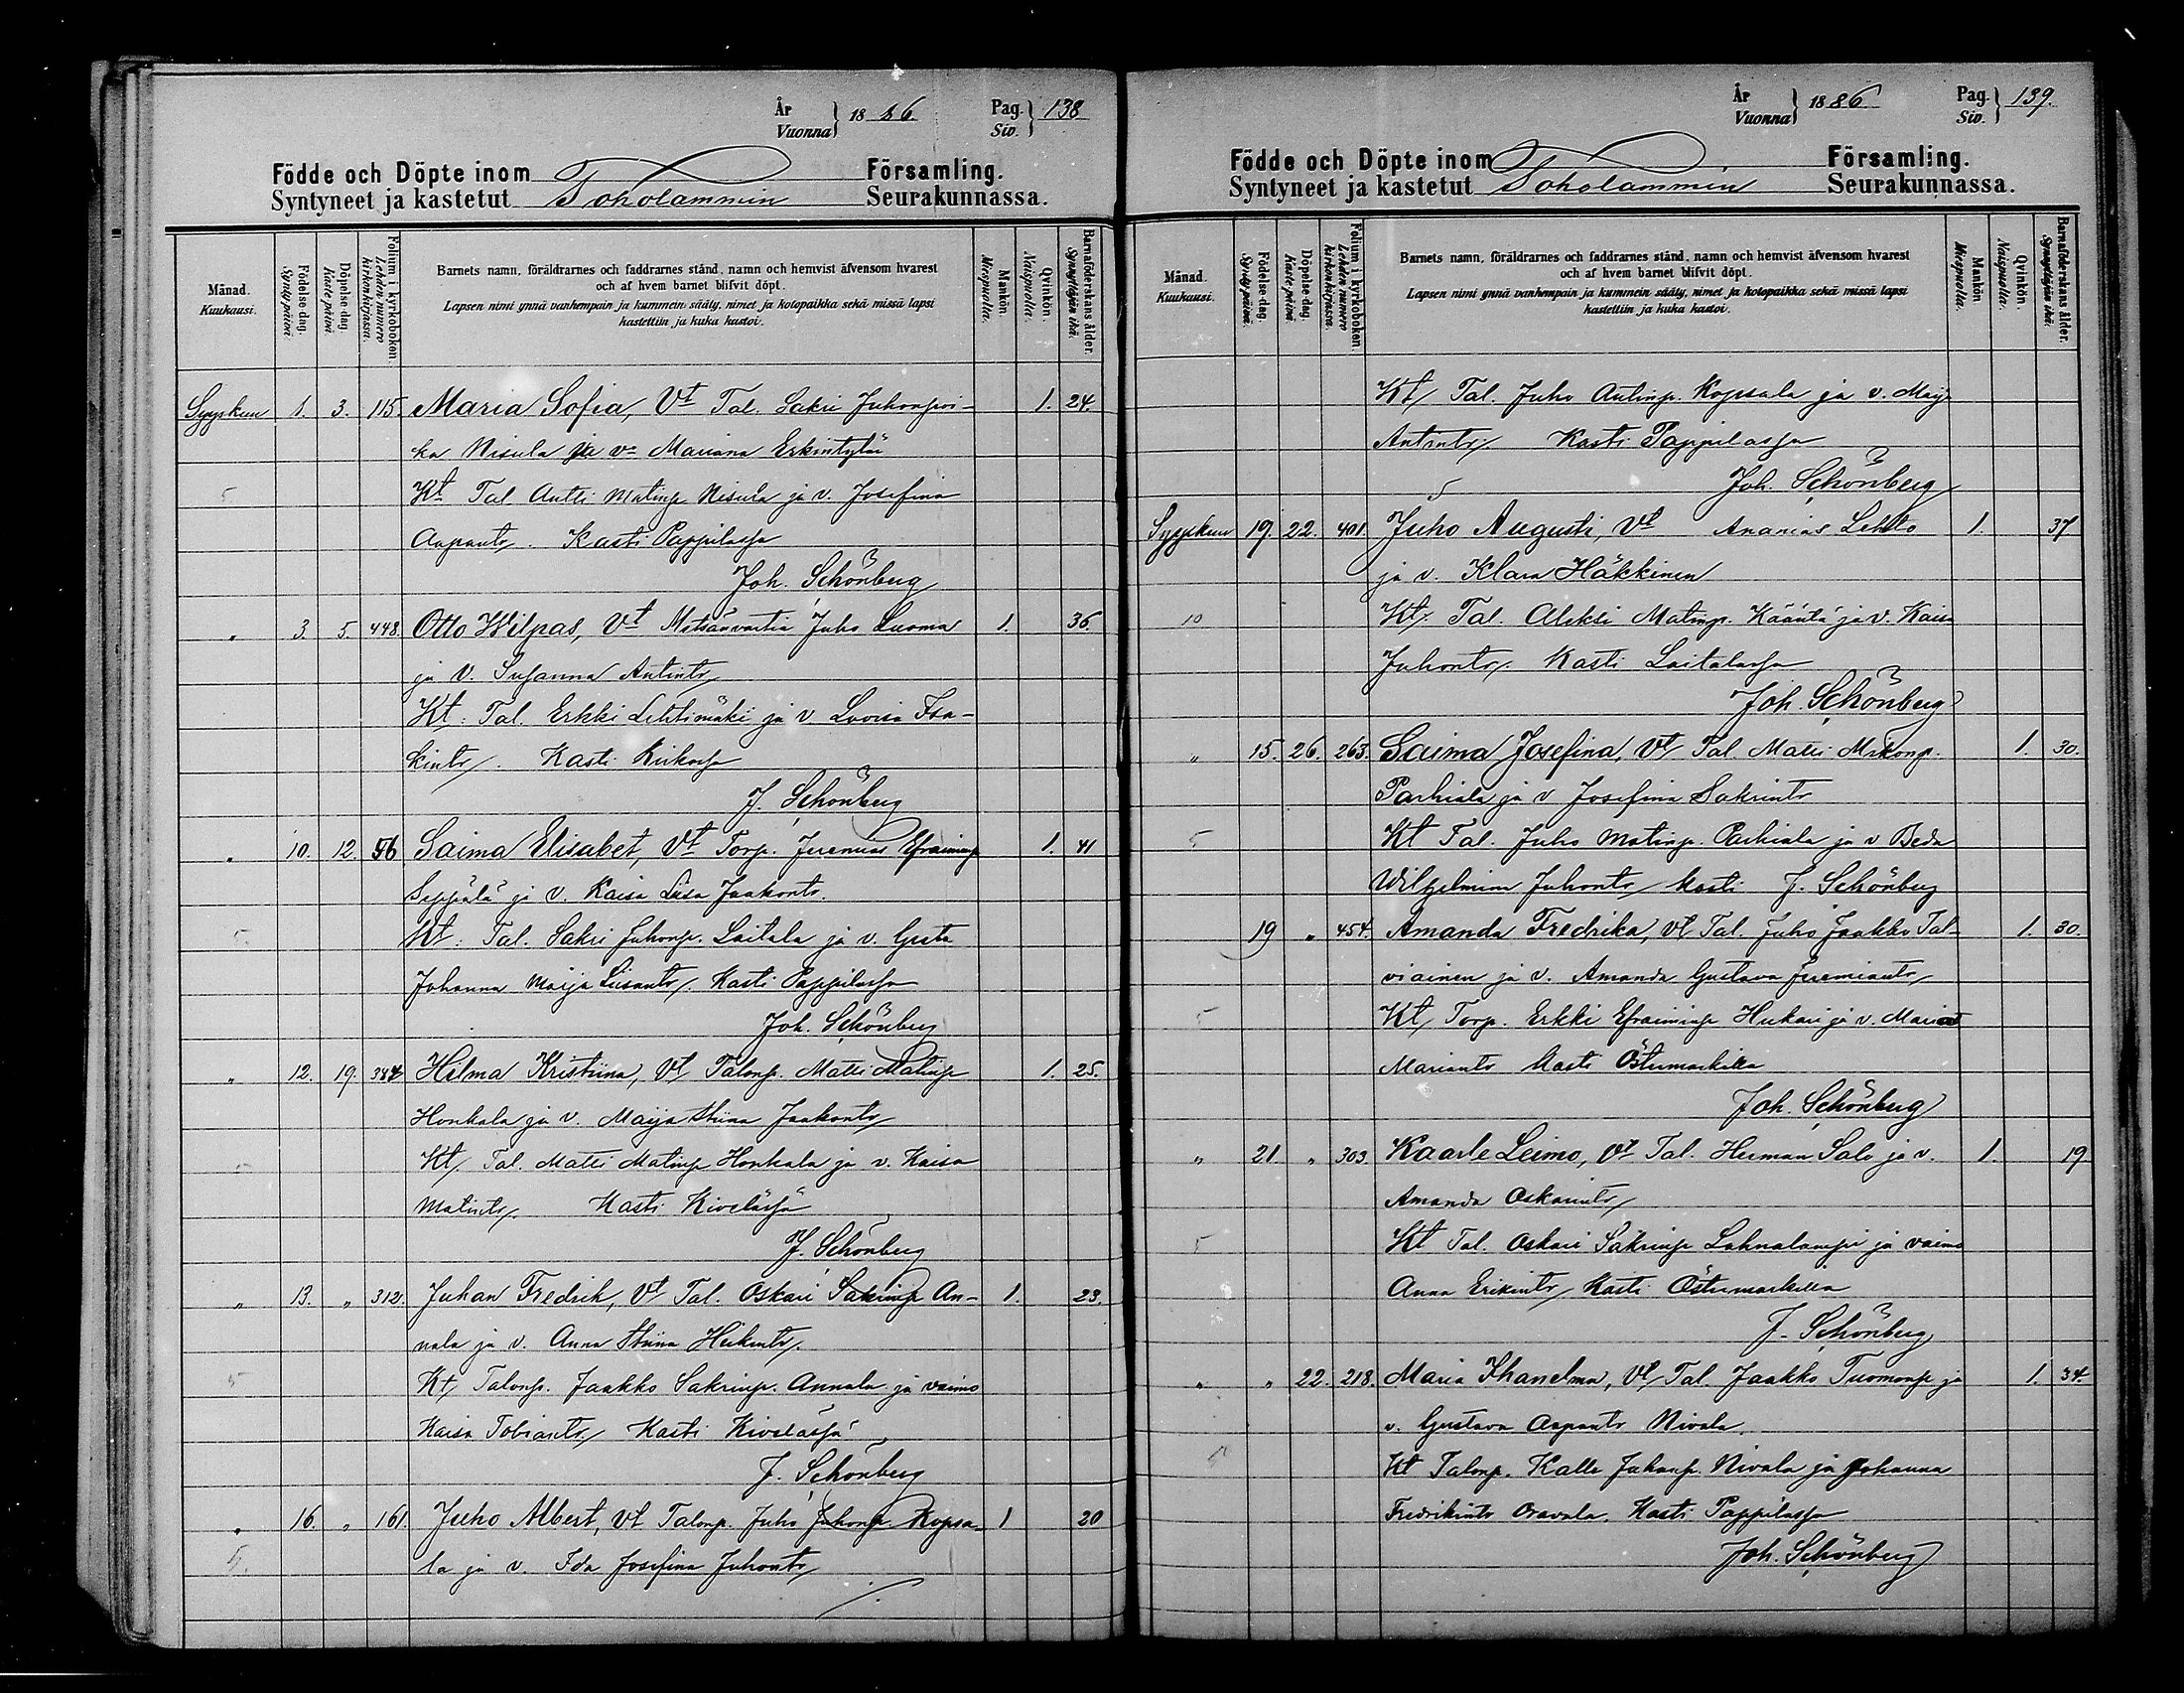 År Vuonna } 1886. Pag. Siv. } 138
Födde och Döpte inom Församling.
Syntyneet ja kastetut Toholammin Seurakunnassa.
Månad. Kuukausi.
Födelse-dag. Synty päivä.
Döpelse-dag Kaste päivä.
Folium i kyrkoboken. Lehden numero kirkonkirjassa.
Barnets namn, föräldrarnes och faddrarnes stånd, namn och hemvist äfvensom hvarest
och af hvem barnet blifvit döpt.
Lapsen nimi ynnä vanhempain ja kummein sääty, nimet ja kotopaikka sekä missä lapsi
kastettiin ja kuka kastoi.
Mankön. Miespuolta.
Qvinkön. Naispuolta.
Barnaföderskans ålder. Synnyttäjän ikä.
Syyskuu 1. 3. 115 Maria Sofia, Vt Tal. Sakri Juhonpoi- 1. 24.
ka Nisula ja v. Mariana Erkintytär
5 Kt Tal Antti Matinp Nisula ja v. Josefina
Aapantr. Kasti Pappilassa
Joh. Schönberg
„ 3. 5. 448. Otto Wilpas, Vt Metsänvartia Juho Luoma 1. 36.
ja v. Susanna Antintr
Kt: Tal. Erkki Lehtimäki ja v. Lovisa Isa-
kintr. Kasti Kirkossa
J. Schönberg
„ 10. 12. 56 Saima Elisabet, Vt Torp. Jeremias Efraiminp 1. 41
Seppälä ja v. Kaisa Liisa Jaakontr.
5. Kt: Tal. Sakri Juhonp. Laitala ja v. Greta
Johanna Maija Liisantr. Kasti Pappilassa
Joh. Schönberg
„ 12. 19. 384 Hilma Kristiina, Vt Talonp. Matti Matinp 1. 25.
Honkala ja v. Maija Stiina Jaakontr
5 Kt Tal. Matti Matinp Honkala ja v. Kaisa
Matintr. Kasti Kivelässä
J. Schönberg
„ 13. „ 312. Juhan Fredrik, Vt Tal. Oskari Sakrinp An- 1. 23.
nala ja v. Anna Stiina Heikintr.
5 Kt Talonp. Jaakko Sakrinp. Annala ja vaimo
Kaisa Tobiantr. Kasti Kivelässä
J. Schönberg
„ 16. „ 161. Juho Albert, Vt Talonp. Juho Juhonp. Kopsa- 1 20
5. la ja v. Ida Josefina Juhontr
År Vuonna } 1886 Pag. Siv. } 139.
Födde och Döpte inom Församling.
Syntyneet ja kastetut Toholammin Seurakunnassa.
Månad. Kuukausi.
Födelse-dag. Synty päivä.
Döpelse-dag. Kaste päivä.
Folium i kyrkoboken. Lehden numero kirkonkirjassa.
Barnets namn, föräldrarnes och faddrarnes stånd, namn och hemvist äfvensom hvarest
och af hvem barnet blifvit döpt.
Lapsen nimi ynnä vanhempain ja kummein sääty, nimet ja kotopaikka sekä missä lapsi
kastettiin ja kuka kastoi.
Mankön Miespuolta.
Qvinkön. Naispuolta.
Barnaföderskans ålder. Synnyttäjän ikä.
Kt Tal. Juho Antinp. Kopsala ja v. Maija
Antintr. Kasti Pappilassa
5 Joh. Schönberg
Syyskuu 19. 22. 401. Juho Augusti, Vt Ananias Lehto 1. 37.
ja v. Klara Häkkinen
10 Kt. Tal. Aleksi Matinp. Kääntä ja v. Kaisa
Juhontr. Kasti Laitalassa
Joh. Schönberg
„ 15. 26. 263. Saima Josefina, Vt Tal. Matti Mikonp. 1. 30.
Parhiala ja v Josefina Sakrintr
5 Kt Tal. Juho Matinp. Parhiala ja v Beda
Wilhelmina Juhontr Kasti J. Schönberg
19 „ 454. Amanda Fredrika, Vt Tal. Juho Jaakko Tal- 1. 30.
viainen ja v. Amanda Gustava Jeremiantr
5 Kt Torp. Erkki Efraiminp Hukari ja v. Maria
Mariantr Kasti Östermarkilla
Joh. Schönberg
„ 21. „ 303. Kaarle Leimo, Vt Tal. Herman Salo ja v. 1. 19
Amanda Oskarintr
5 Kt Tal. Oskari Sakrinp Lahnalampi ja vaimo
Anna Erikintr Kasti Östermarkilla
J. Schönberg
„ „ 22. 218. Maria Ihanelma, Vt Tal. Jaakko Tuomonp ja 1. 34.
v. Gustava Aapantr Nivala.
Kt Talonp. Kalle Juhonp. Nivala ja Johanna
Fredrikintr Oravala. Kasti Pappilassa
Joh. Schönberg